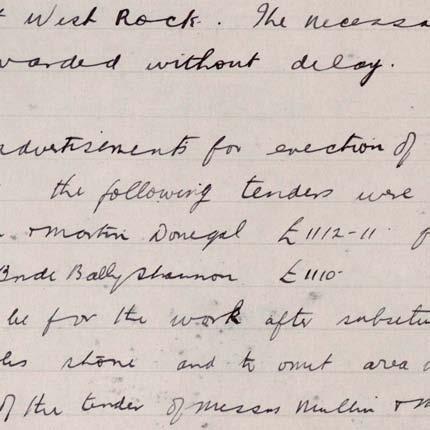 West Rock. The necessa
warded without delay.
advertisements for erection of
the following tenders were
+ Martin Donegal £1112-11
Bride Ballyshannon £1110-
be for the work after substitu
stone and to omit area
of the tender of Messrs Mullin +